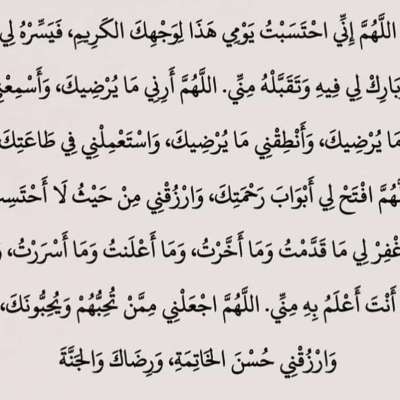 اللَّهُمَّ إِنِّي احْتَسَبْتُ يَوْمِي هَذَا لِوَجْهِكَ الكَرِيمِ، فَيَسِّرْهُ لِي
بَارِكْ لِي فِيهِ وَتَقَبَّلْهُ مِنِّي. اللَّهُمَّ أَرِنِي مَا يُرْضِيكَ، وَأَسْمِعْنِي
مَا يُرْضِيكَ، وَأَنْطِقْنِي مَا يُرْضِيكَ، وَاسْتَعْمِلْنِي فِي طَاعَتِكَ
افْتَحْ لِي أَبْوَابَ رَحْمَتِكَ، وَارْزُقْنِي مِنْ حَيْثُ لَا أَحْتَسِ
لِي مَا قَدَّمْتُ وَمَا أَخَّرْتُ، وَمَا أَعْلَنتُ وَمَا أَسْرَرْتُ،
أَنْتَ أَعْلَمُ بِهِ مِنِّي. اللَّهُمَّ اجْعَلْنِي مِمَّنْ تُحِبُّهُمْ وَيُحِبُّونَكَ،
وَارْزُقْنِي حُسْنَ الخَاتِمَةِ، وَرِضَاكَ وَالجَنَّةَ